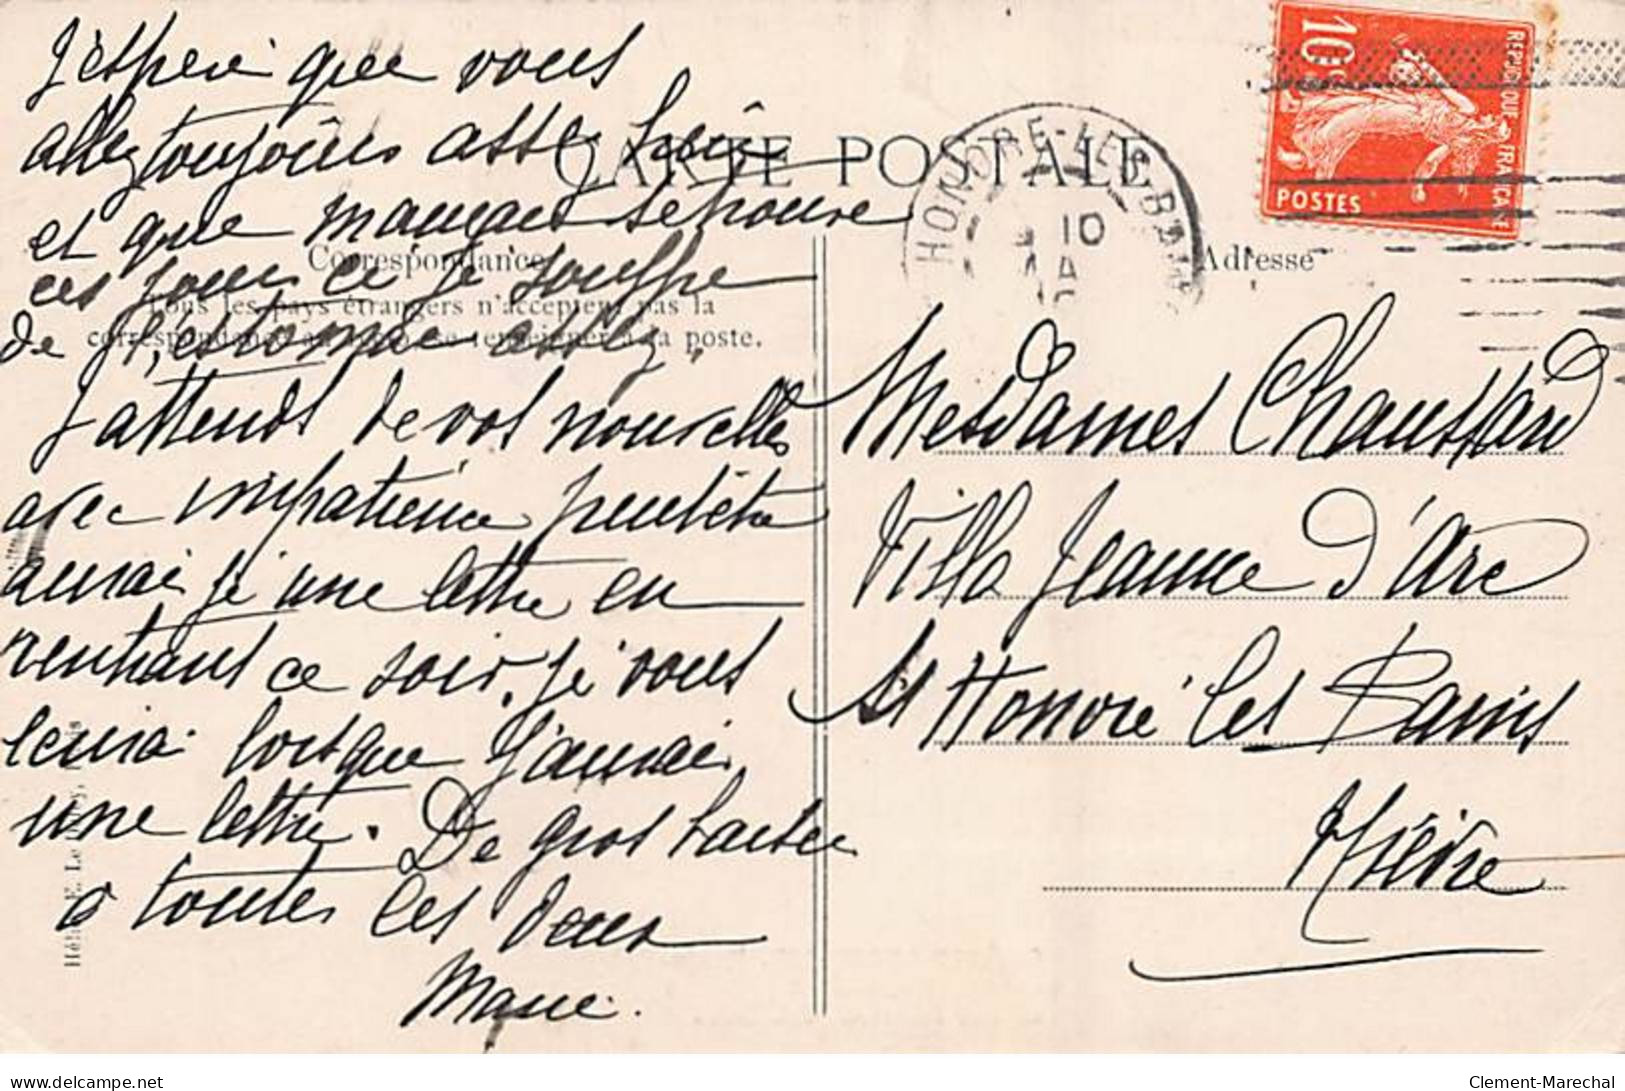 J'espère que vous
allez toujours assez bien
et que maman se trouve
ces jours ce je souffre
de l'estomac assez.
J'attends de vos nouvelles
avec impatience peutêtre
aurai je une lettre en
rentrant ce soir. Je vous
lorsque j'aurai
une lettre. De gros baisers
à toutes les deux
Marie.
CARTE POSTALE
Correspondance
Tous les pays étrangers n'acceptent pas la
correspondance au se renseigner à la poste.
Adresse
HONORE-LES-BAINS
10
10c
REPUBLIQUE FRANÇAISE
POSTES
Mesdames Chaussard
Villa Jeanne d'Arc
St Honoré les Bains
Nièvre
Hélio E. Le
delcampe.net
Clement-Marechal